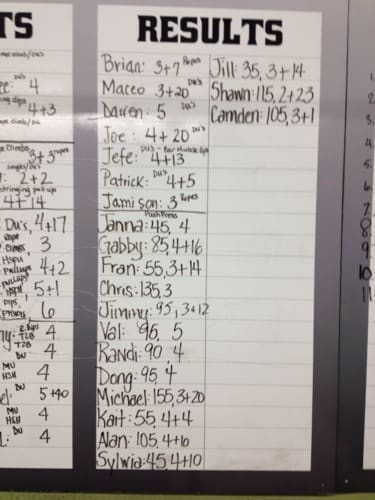 TS
RESULTS
4
4+3
3+3 ropes
2+2
4+14
Du's, 4+17
3
HSPU
Pullups 4+2
5+1
Dips, 6
4
DU 4
MU
HSH 4
DU 5+40
MU
HSH 4
DU 4
Brian: 3+7 Ropes
Maceo 3+20 DU's
Darren: 5 DU's
Joe: 4+20 DU's
Jefe: DU's - Bar Muscle Ups 4+13
Patrick: DU's 4+5
Jamison: 3 Ropes
Push Press
Janna: 45, 4
Gabby: 85, 4+16
Fran: 55, 3+14
Chris: 135, 3
Jimmy: 95, 3+12
Val: 95, 5
Randi: 90, 4
Dong: 95, 4
Michael: 155, 3+20
Kait: 55, 4+4
Alan: 105, 4+6
Sylwia: 45, 4+10
Jill: 35, 3+14
Shawn: 115, 2+23
Camden: 105, 3+1
1.
2.
3.
4.
5.
6.
7
8
9
10
11